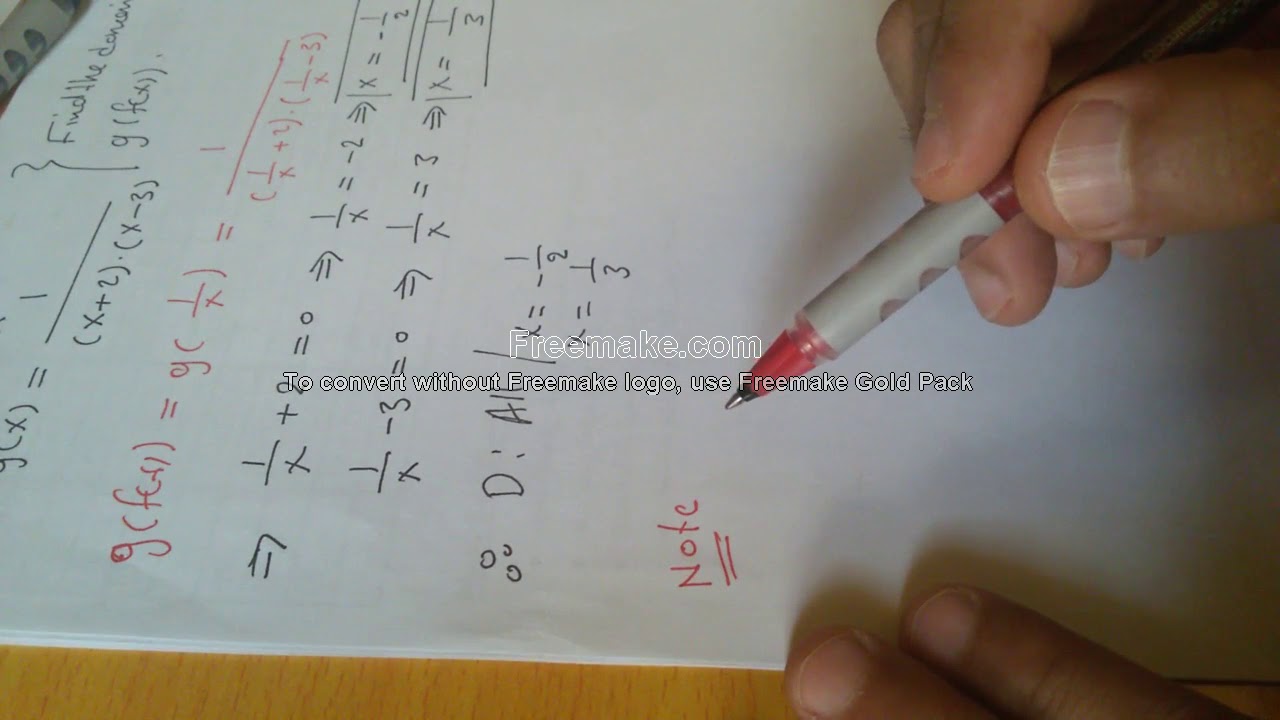 } Find the domain
g(x) = 1/((x+2)·(x-3)) } g(f(x)).
g(f(x)) = g(1/x) = 1/((1/x+2)·(1/x-3))
⇒ 1/x + 2 = 0 ⇒ 1/x = -2 ⇒ x = -1/2
1/x - 3 = 0 ⇒ 1/x = 3 ⇒ x = 1/3
∴ D: All / x = -1/2
x = 1/3
Note
Freemake.com
To convert without Freemake logo, use Freemake Gold Pack